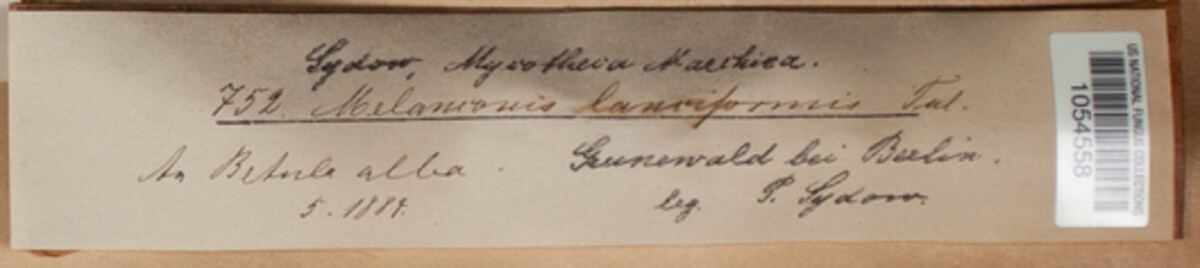 Sydow, Mycotheca Marchica.
752. Melanconis lanciformis Tul.
An Betula alba.
5. 1884.
Grunewald bei Berlin.
leg. P. Sydow.
US NATIONAL FUNGUS COLLECTIONS
1054558